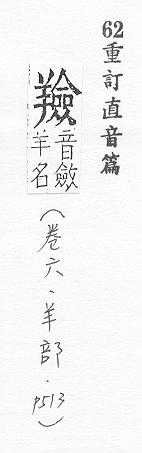 62重訂直音篇
羷
音斂
羊名
(卷六·羊部·p513)